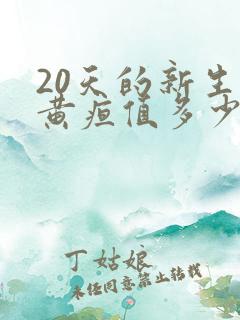 20天的新生
黄疸值多少
丁姑娘
未经同意禁止转载